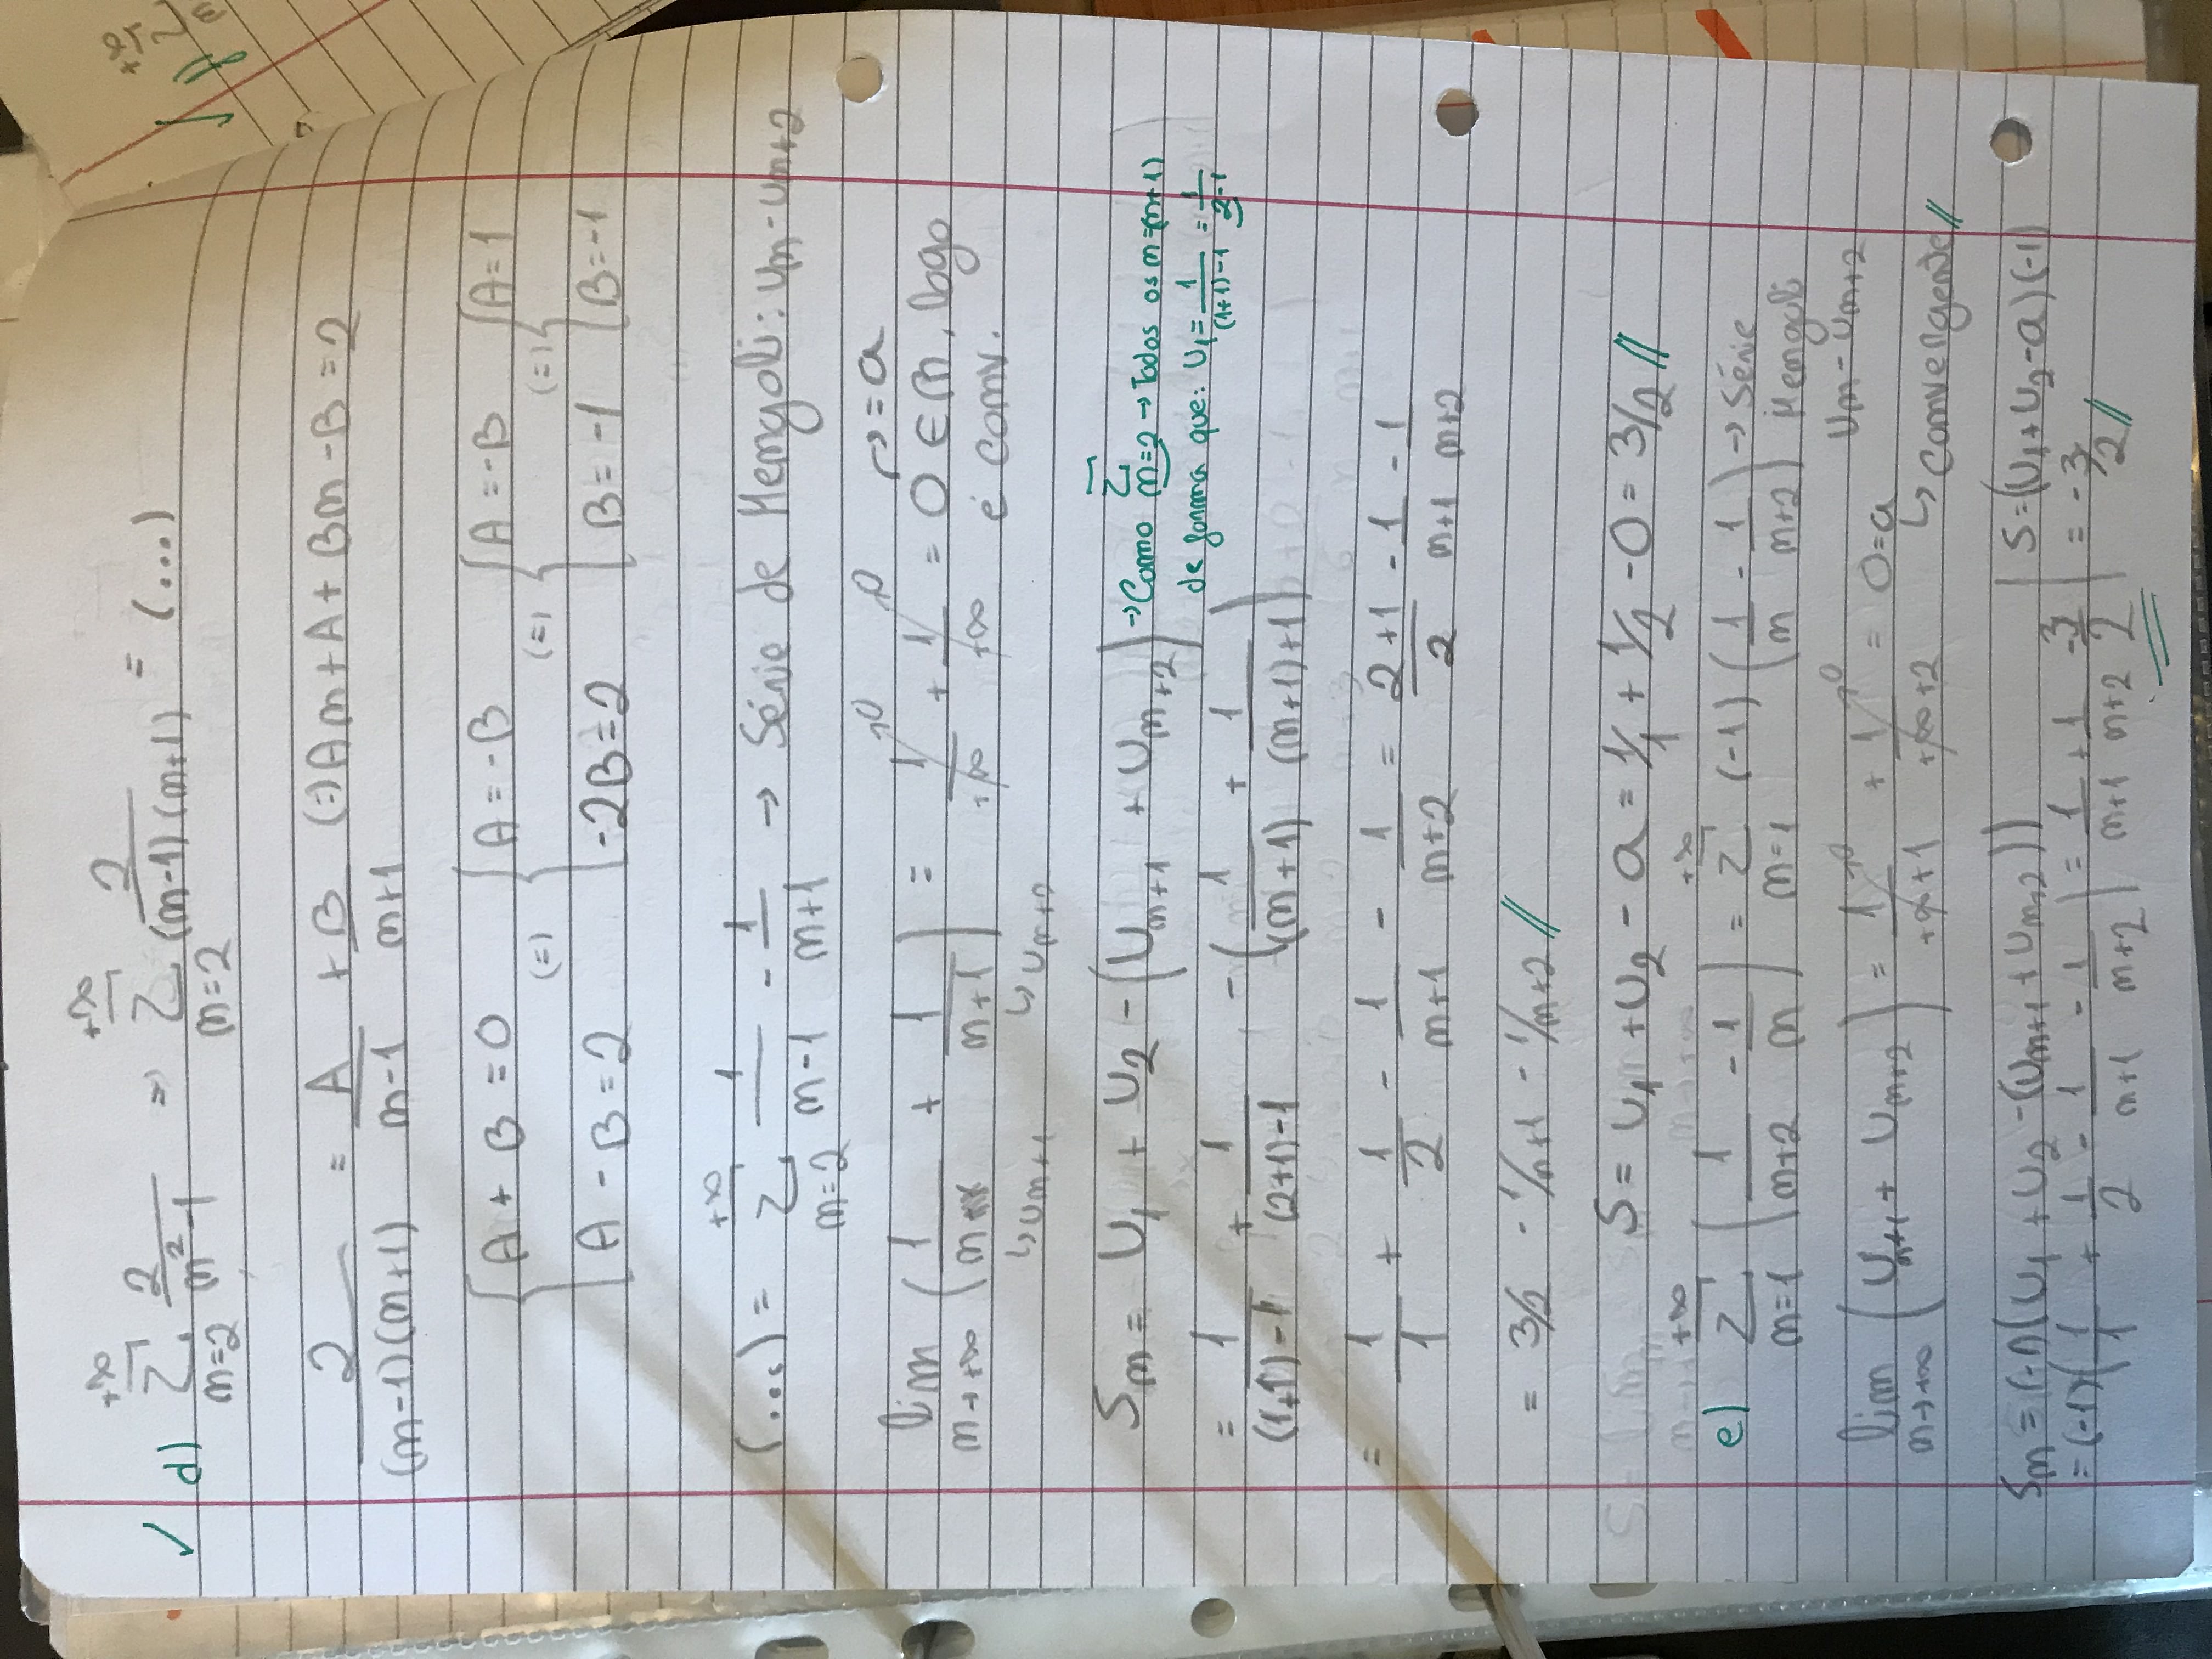 ✓ d) +∞ Σ m=2 2/(m²-1) => +∞ Σ m=2 2/((m-1)(m+1)) = (...)
2/((m-1)(m+1)) = A/(m-1) + B/(m+1) (=) Am+A+Bm-B=2
{A + B = 0 (=) {A = -B (=) {A = -B (=) {A=1
{A - B = 2 {-2B=2 {B = -1 {B=-1
(...) = +∞ Σ m=2 1/(m-1) - 1/(m+1) → Série de Mengoli: um - um+2
↱ = a
lim m→+∞ (1/m + 1/(m+1)) = 1/+∞ ↗0 + 1/+∞ ↗0 = 0 ∈ ℝ, logo
é conv.
↳ um+1 ↳ um+2
Sm = U1 + U2 - (Um+1 + Um+2) → Como Σ m=2 → Todos os m=(m+1)
de forma que: U1 = 1/((1+1)-1) = 1/(2-1)
= 1/((1+1)-1) + 1/((2+1)-1) - (1/(m+1) + 1/((m+1)+1))
= 1/1 + 1/2 - 1/(m+1) - 1/(m+2) = (2+1)/2 - 1/(m+1) - 1/(m+2)
= 3/2 - 1/n+1 - 1/m+2 //
S = U1 + U2 - a = 1/1 + 1/2 - 0 = 3/2 //
e) +∞ Σ m=1 (1/(m+2) - 1/m) = +∞ Σ m=1 (-1) (1/m - 1/(m+2)) → Série
Mengoli
Um - Um+2
lim m→+∞ (Un+1 + Um+2) = 1/(+∞+1) ↗0 + 1/(+∞+2) ↗0 = 0=a
↳ Convergente //
Sm = (-1)(U1 + U2 - (Um+1 + Um+2)) | S = (U1+U2-a)(-1)
= (-1)(1/1 + 1/2 - 1/(m+1) - 1/(m+2)) = 1/(m+1) + 1/(m+2) - 3/2 | = -3/2 //